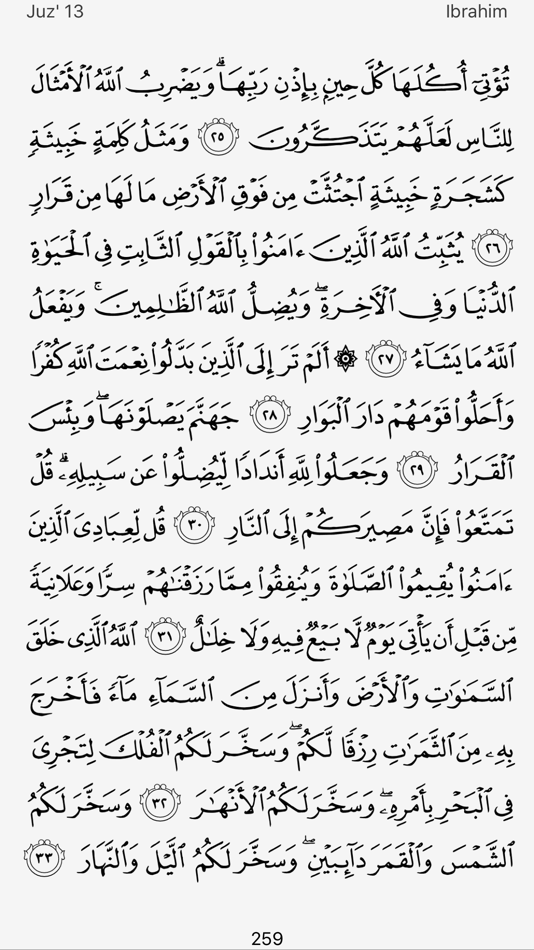 Juz' 13 Ibrahim
تُؤْتِىٓ أُكُلَهَا كُلَّ حِينٍۭ بِإِذْنِ رَبِّهَاۗ وَيَضْرِبُ ٱللَّهُ ٱلْأَمْثَالَ
لِلنَّاسِ لَعَلَّهُمْ يَتَذَكَّرُونَ ٢٥ وَمَثَلُ كَلِمَةٍ خَبِيثَةٍ
كَشَجَرَةٍ خَبِيثَةٍ ٱجْتُثَّتْ مِن فَوْقِ ٱلْأَرْضِ مَا لَهَا مِن قَرَارٍ
٢٦ يُثَبِّتُ ٱللَّهُ ٱلَّذِينَ ءَامَنُوا۟ بِٱلْقَوْلِ ٱلثَّابِتِ فِى ٱلْحَيَوٰةِ
ٱلدُّنْيَا وَفِى ٱلْأَخِرَةِۖ وَيُضِلُّ ٱللَّهُ ٱلظَّـٰلِمِينَۚ وَيَفْعَلُ
ٱللَّهُ مَا يَشَآءُ ٢٧ ۞ أَلَمْ تَرَ إِلَى ٱلَّذِينَ بَدَّلُوا۟ نِعْمَتَ ٱللَّهِ كُفْرًا
وَأَحَلُّوا۟ قَوْمَهُمْ دَارَ ٱلْبَوَارِ ٢٨ جَهَنَّمَ يَصْلَوْنَهَاۖ وَبِئْسَ
ٱلْقَرَارُ ٢٩ وَجَعَلُوا۟ لِلَّهِ أَندَادًا لِّيُضِلُّوا۟ عَن سَبِيلِهِۦۗ قُلْ
تَمَتَّعُوا۟ فَإِنَّ مَصِيرَكُمْ إِلَى ٱلنَّارِ ٣٠ قُل لِّعِبَادِىَ ٱلَّذِينَ
ءَامَنُوا۟ يُقِيمُوا۟ ٱلصَّلَوٰةَ وَيُنفِقُوا۟ مِمَّا رَزَقْنَـٰهُمْ سِرًّا وَعَلَانِيَةً
مِّن قَبْلِ أَن يَأْتِىَ يَوْمٌ لَّا بَيْعٌ فِيهِ وَلَا خِلَـٰلٌ ٣١ ٱللَّهُ ٱلَّذِى خَلَقَ
ٱلسَّمَـٰوَٰتِ وَٱلْأَرْضَ وَأَنزَلَ مِنَ ٱلسَّمَآءِ مَآءً فَأَخْرَجَ
بِهِۦ مِنَ ٱلثَّمَرَٰتِ رِزْقًا لَّكُمْۖ وَسَخَّرَ لَكُمُ ٱلْفُلْكَ لِتَجْرِىَ
فِى ٱلْبَحْرِ بِأَمْرِهِۦۖ وَسَخَّرَ لَكُمُ ٱلْأَنْهَـٰرَ ٣٢ وَسَخَّرَ لَكُمُ
ٱلشَّمْسَ وَٱلْقَمَرَ دَآئِبَيْنِۖ وَسَخَّرَ لَكُمُ ٱلَّيْلَ وَٱلنَّهَارَ ٣٣
259